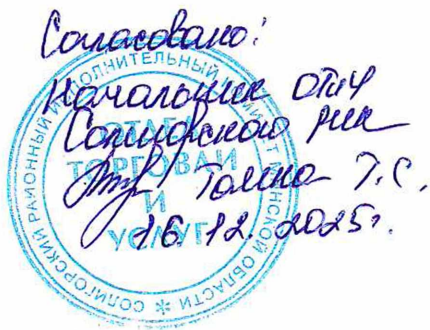 Согласовано:
Начальник ОТиУ
Солигорского рик
Томно Т.С.
16.12.2025г.
СОЛИГОРСКИЙ РАЙОННЫЙ ИСПОЛНИТЕЛЬНЫЙ КОМИТЕТ МИНСКОЙ ОБЛАСТИ
ОТДЕЛ
ТОРГОВЛИ
И
УСЛУГ